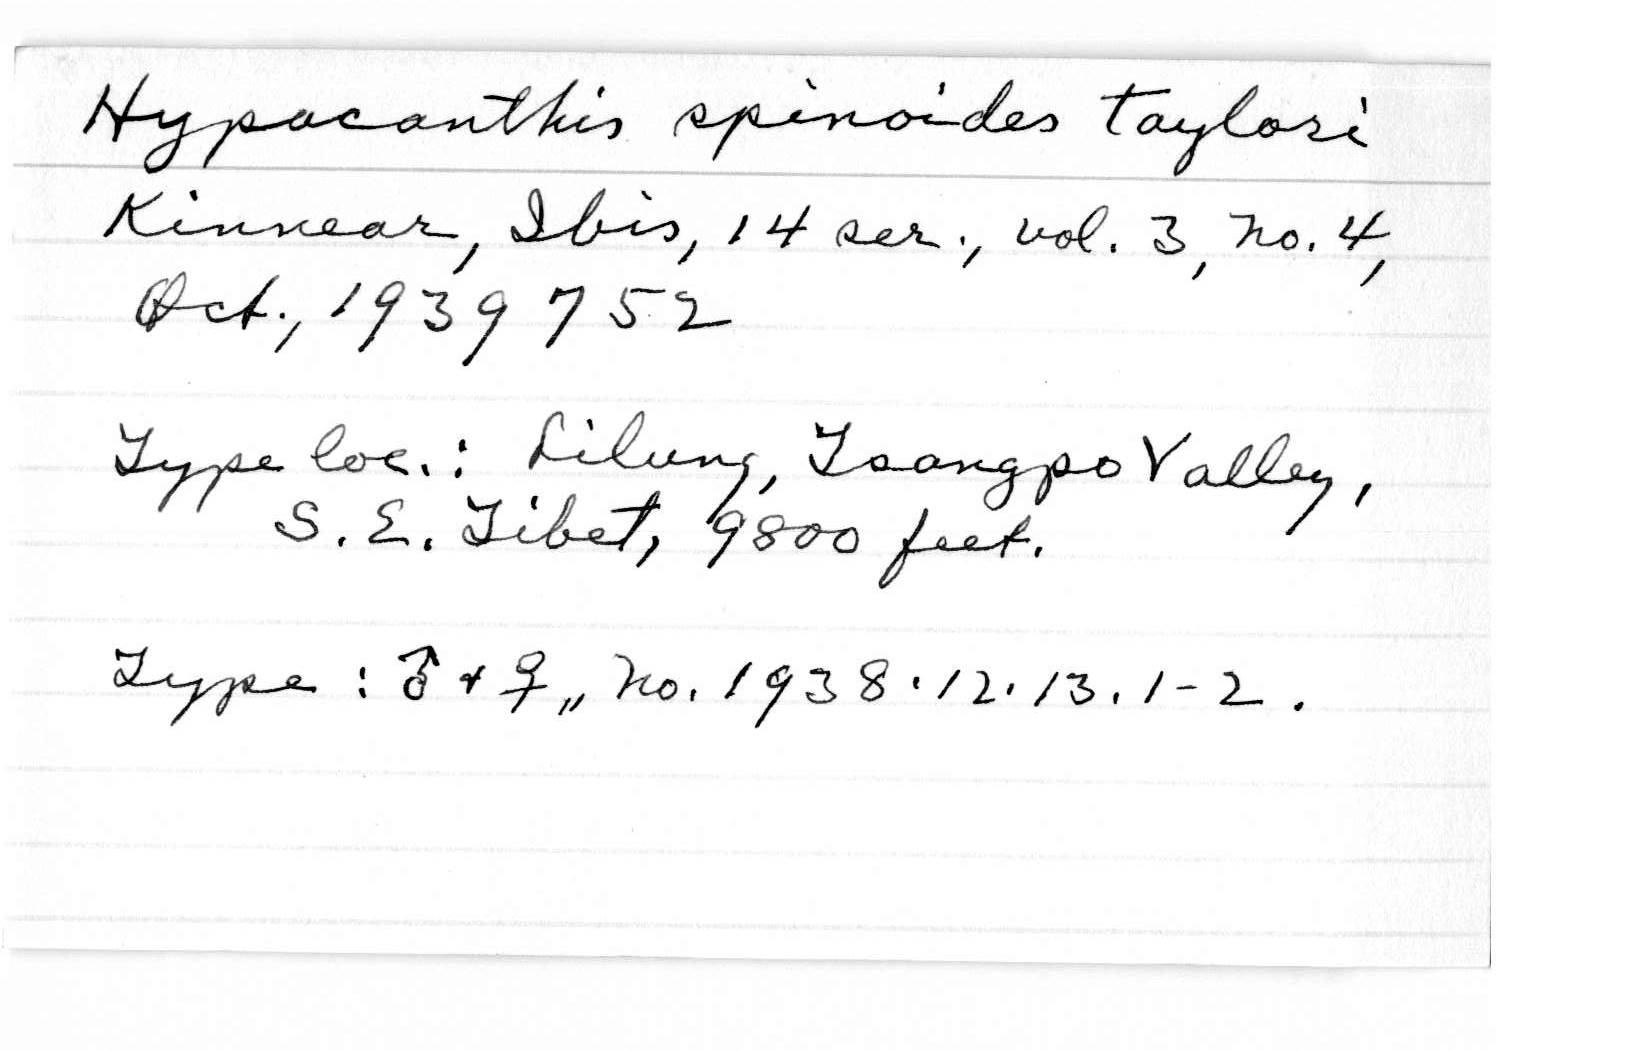 Hypacanthis spinoides taylori
Kinnear, Ibis, 14 ser., vol. 3, no. 4,
Oct., 1939 752
Type loc.: Lilung, Tsangpo Valley,
S. E. Tibet, 9800 feet.
Type : ♂ + ♀,, no. 1938.12.13.1-2.